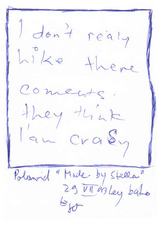 I don't realy
Like there
coments.
they think
I'am crasy
Poland "Made by Stella"
29 VII